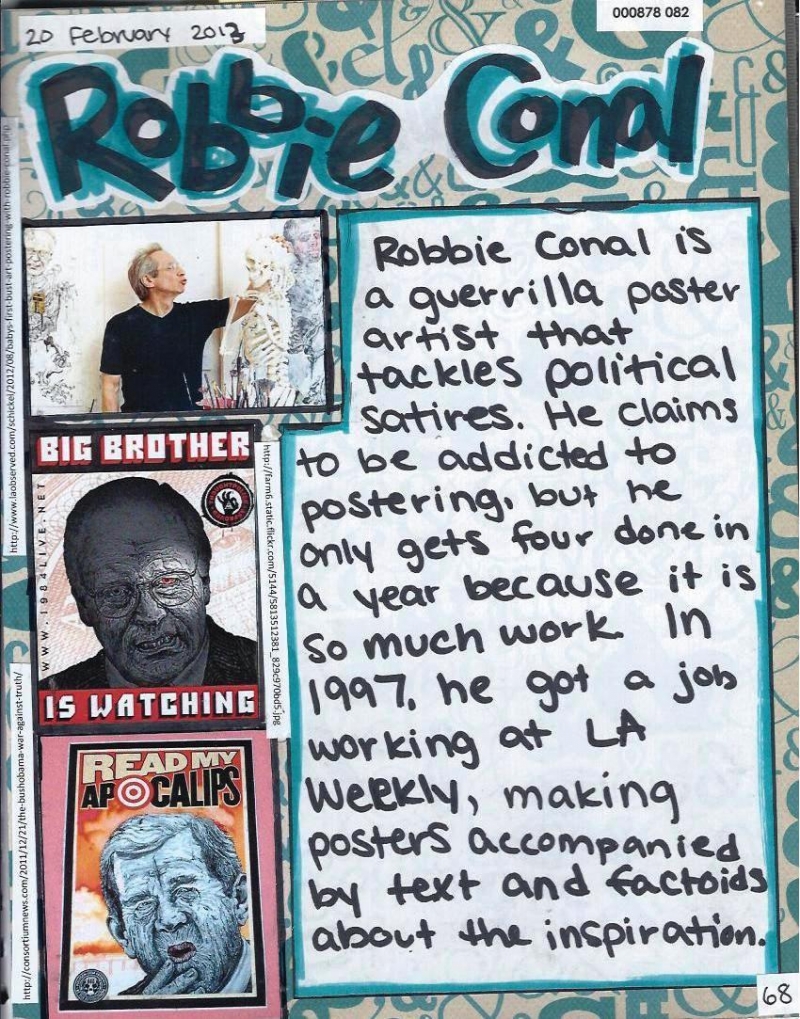 000878 082
20 February 2013
Robbie Conal
http://www.laobserved.com/schickel/2012/08/babys-first-bust-art-postering-with-robbie-conal.php
Robbie Conal is
a guerrilla poster
artist that
tackles political
satires. He claims
to be addicted to
postering, but he
only gets four done in
a year because it is
so much work. In
1997, he got a job
working at LA
Weekly, making
posters accompanied
by text and factoids
about the inspiration.
BIG BROTHER
WWW.1984LIVE.NET
IS WATCHING
http://farm6.static.flickr.com/5144/5813512381_829c970bd5.jpg
http://consortiumnews.com/2011/12/21/the-bushobama-war-against-truth/
READ MY
APOCALIPS
68